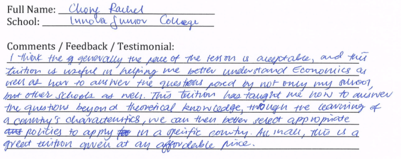 Full Name: Chong Rachel
School: Innova Junior College
Comments / Feedback / Testimonial:
I think the generally the pace of the lesson is acceptable, and this
tuition is useful in helping me better understand Economics as
well as how to answer the questions posed by not only my school
but other schools as well. This tuition has taught me how to answer
the questions beyond theoretical knowledge, through the learning of
a country's characteristics, we can then better select appropriate
policies to apply in a specific country. All in all, this is a
great tuition given at an affordable price.